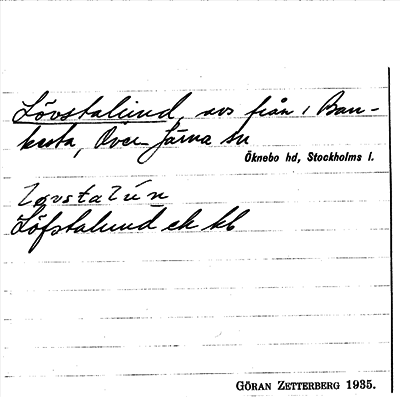 Lövstalund, avs från 1 Ban-
kesta, Över-Järna sn
Öknebo hd, Stockholms l.
Lövstalún
Löfstalund ek kb
GÖRAN ZETTERBERG 1935.